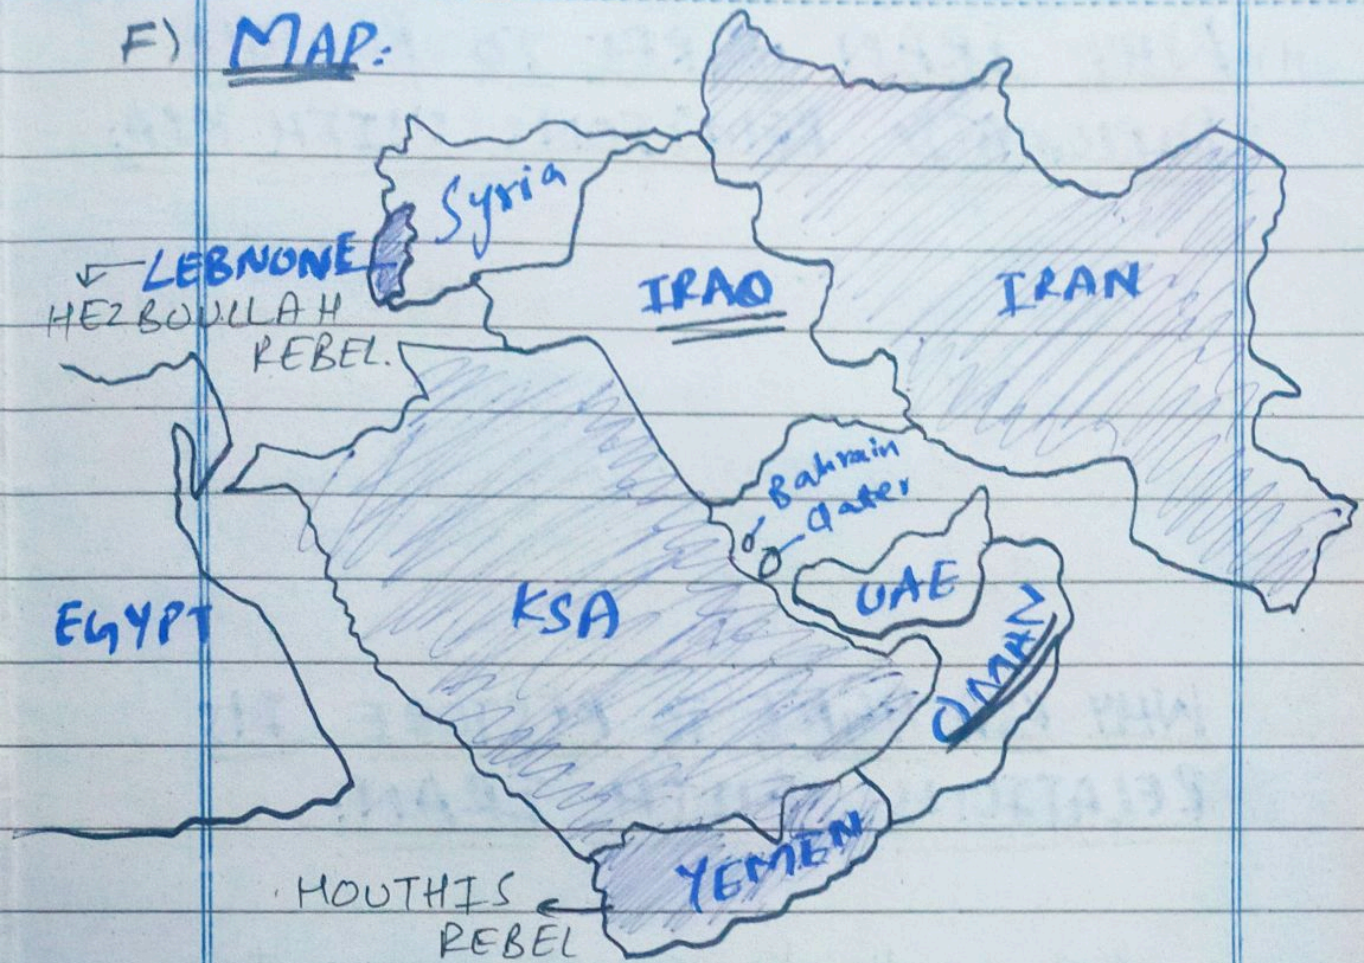 F) MAP:
Syria
LEBNONE
HEZBOULLAH
REBEL.
IRAQ
IRAN
Bahrain
Qater
UAE
KSA
EGYPT
OMAN
YEMEN
HOUTHIS
REBEL